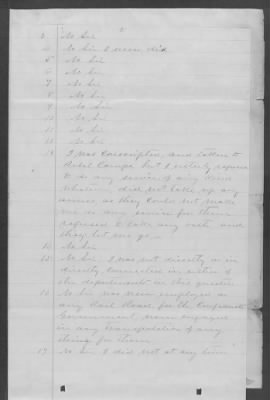 2
3 No Sir
4 No Sir I never did
5 No Sir
6 No Sir
7 No Sir
8 No Sir
9 No Sir
10 No Sir
11 No Sir
12 No Sir
13 I was Conscripted, and taken to
Camps but I utterly refused
to do any service of any kind
whatever, did not take up any
as they could not make
me do any service for them
refused to take any oath and
they let me go
14 No Sir
15 No Sir, I was not directly or in
directly connected in either of
the departments in this question
16 No Sir was never employed on
any Rail Road, for the Confederate
Government, never engaged
in any transportation of any
thing for them
17 No Sir I did not at any time